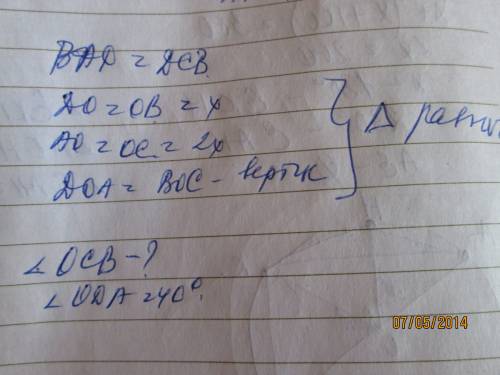 BAD = DCB
DO = OB = x
AO = OC = 2x
DOA = BOC - вертик
} Δ равны
∠OCB - ?
∠ODA = 40°.
07/05/2014